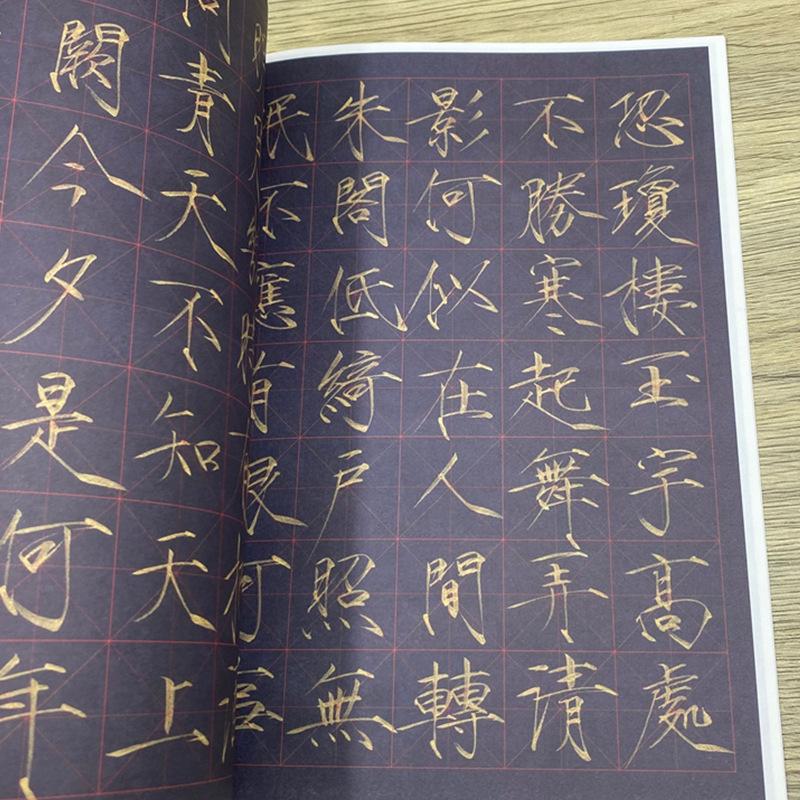 問青天不知天上
闕今夕是何年
恐瓊樓玉宇高處
不勝寒起舞弄清
影何似在人間轉
朱閣低綺戶照無
眠不應有恨何